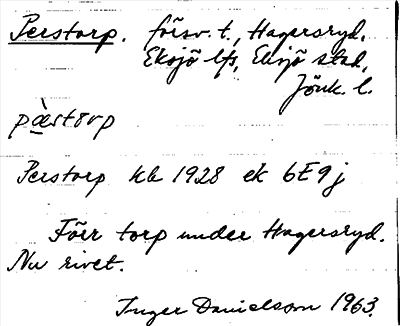 Perstorp. försv. t., Hagersryd,
Eksjö lfs, Eksjö stad,
Jönk. l.
pæ̀storp
Perstorp hb 1928 ek 6E9j
Förr torp under Hagersryd.
Nu rivet.
Inger Danielsson 1963.